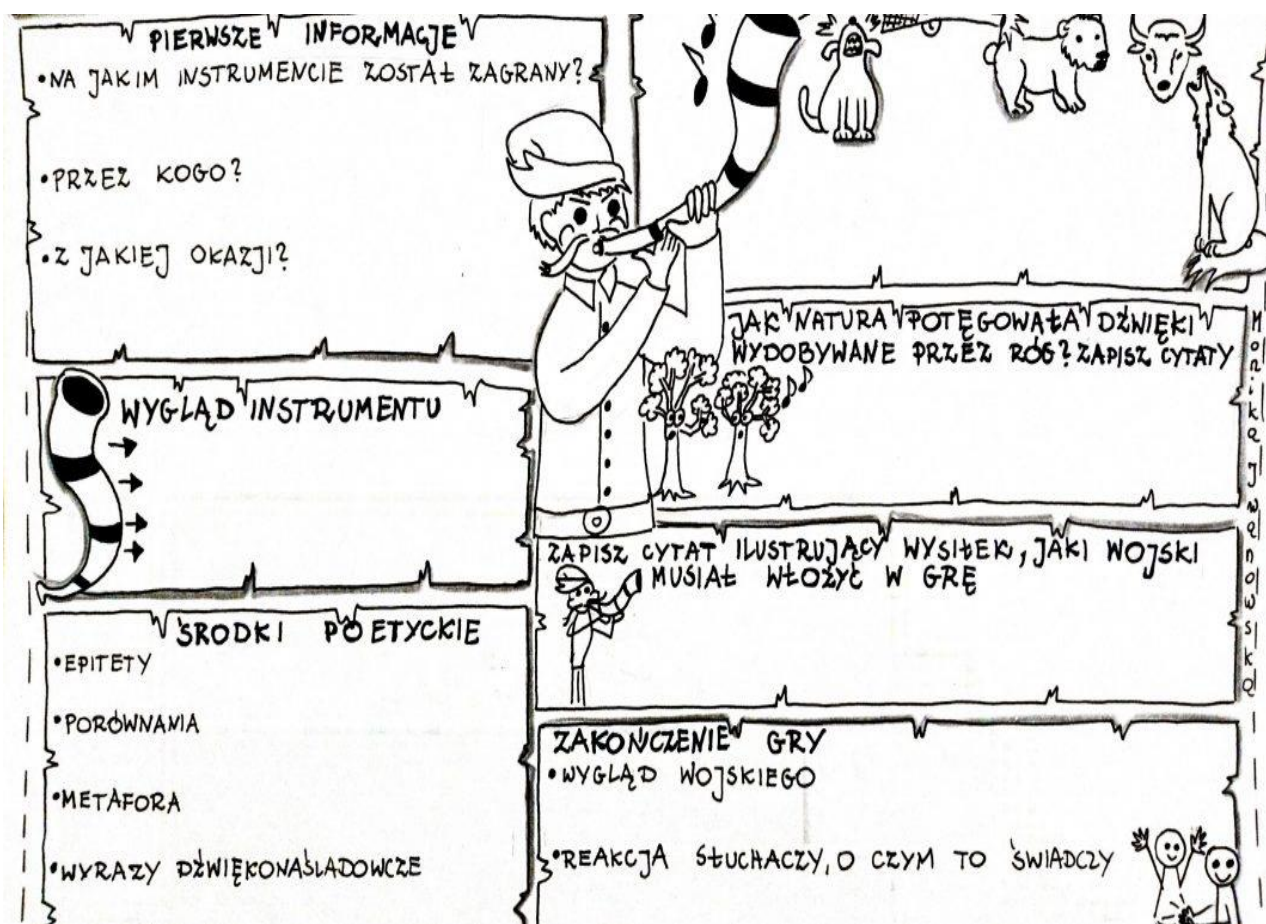 PIERWSZE INFORMACJE
•NA JAKIM INSTRUMENCIE ZOSTAŁ ZAGRANY?
•PRZEZ KOGO?
•Z JAKIEJ OKAZJI?
WYGLĄD INSTRUMENTU
ŚRODKI POETYCKIE
•EPITETY
•PORÓWNANIA
•METAFORA
•WYRAZY DŹWIĘKONAŚLADOWCZE
JAK NATURA POTĘGOWAŁA DŹWIĘKI
WYDOBYWANE PRZEZ RÓG? ZAPISZ CYTATY
ZAPISZ CYTAT ILUSTRUJĄCY WYSIŁEK, JAKI WOJSKI
MUSIAŁ WŁOŻYĆ W GRĘ
ZAKOŃCZENIE GRY
•WYGLĄD WOJSKIEGO
•REAKCJA SŁUCHACZY, O CZYM TO ŚWIADCZY
Monika Iwanowska